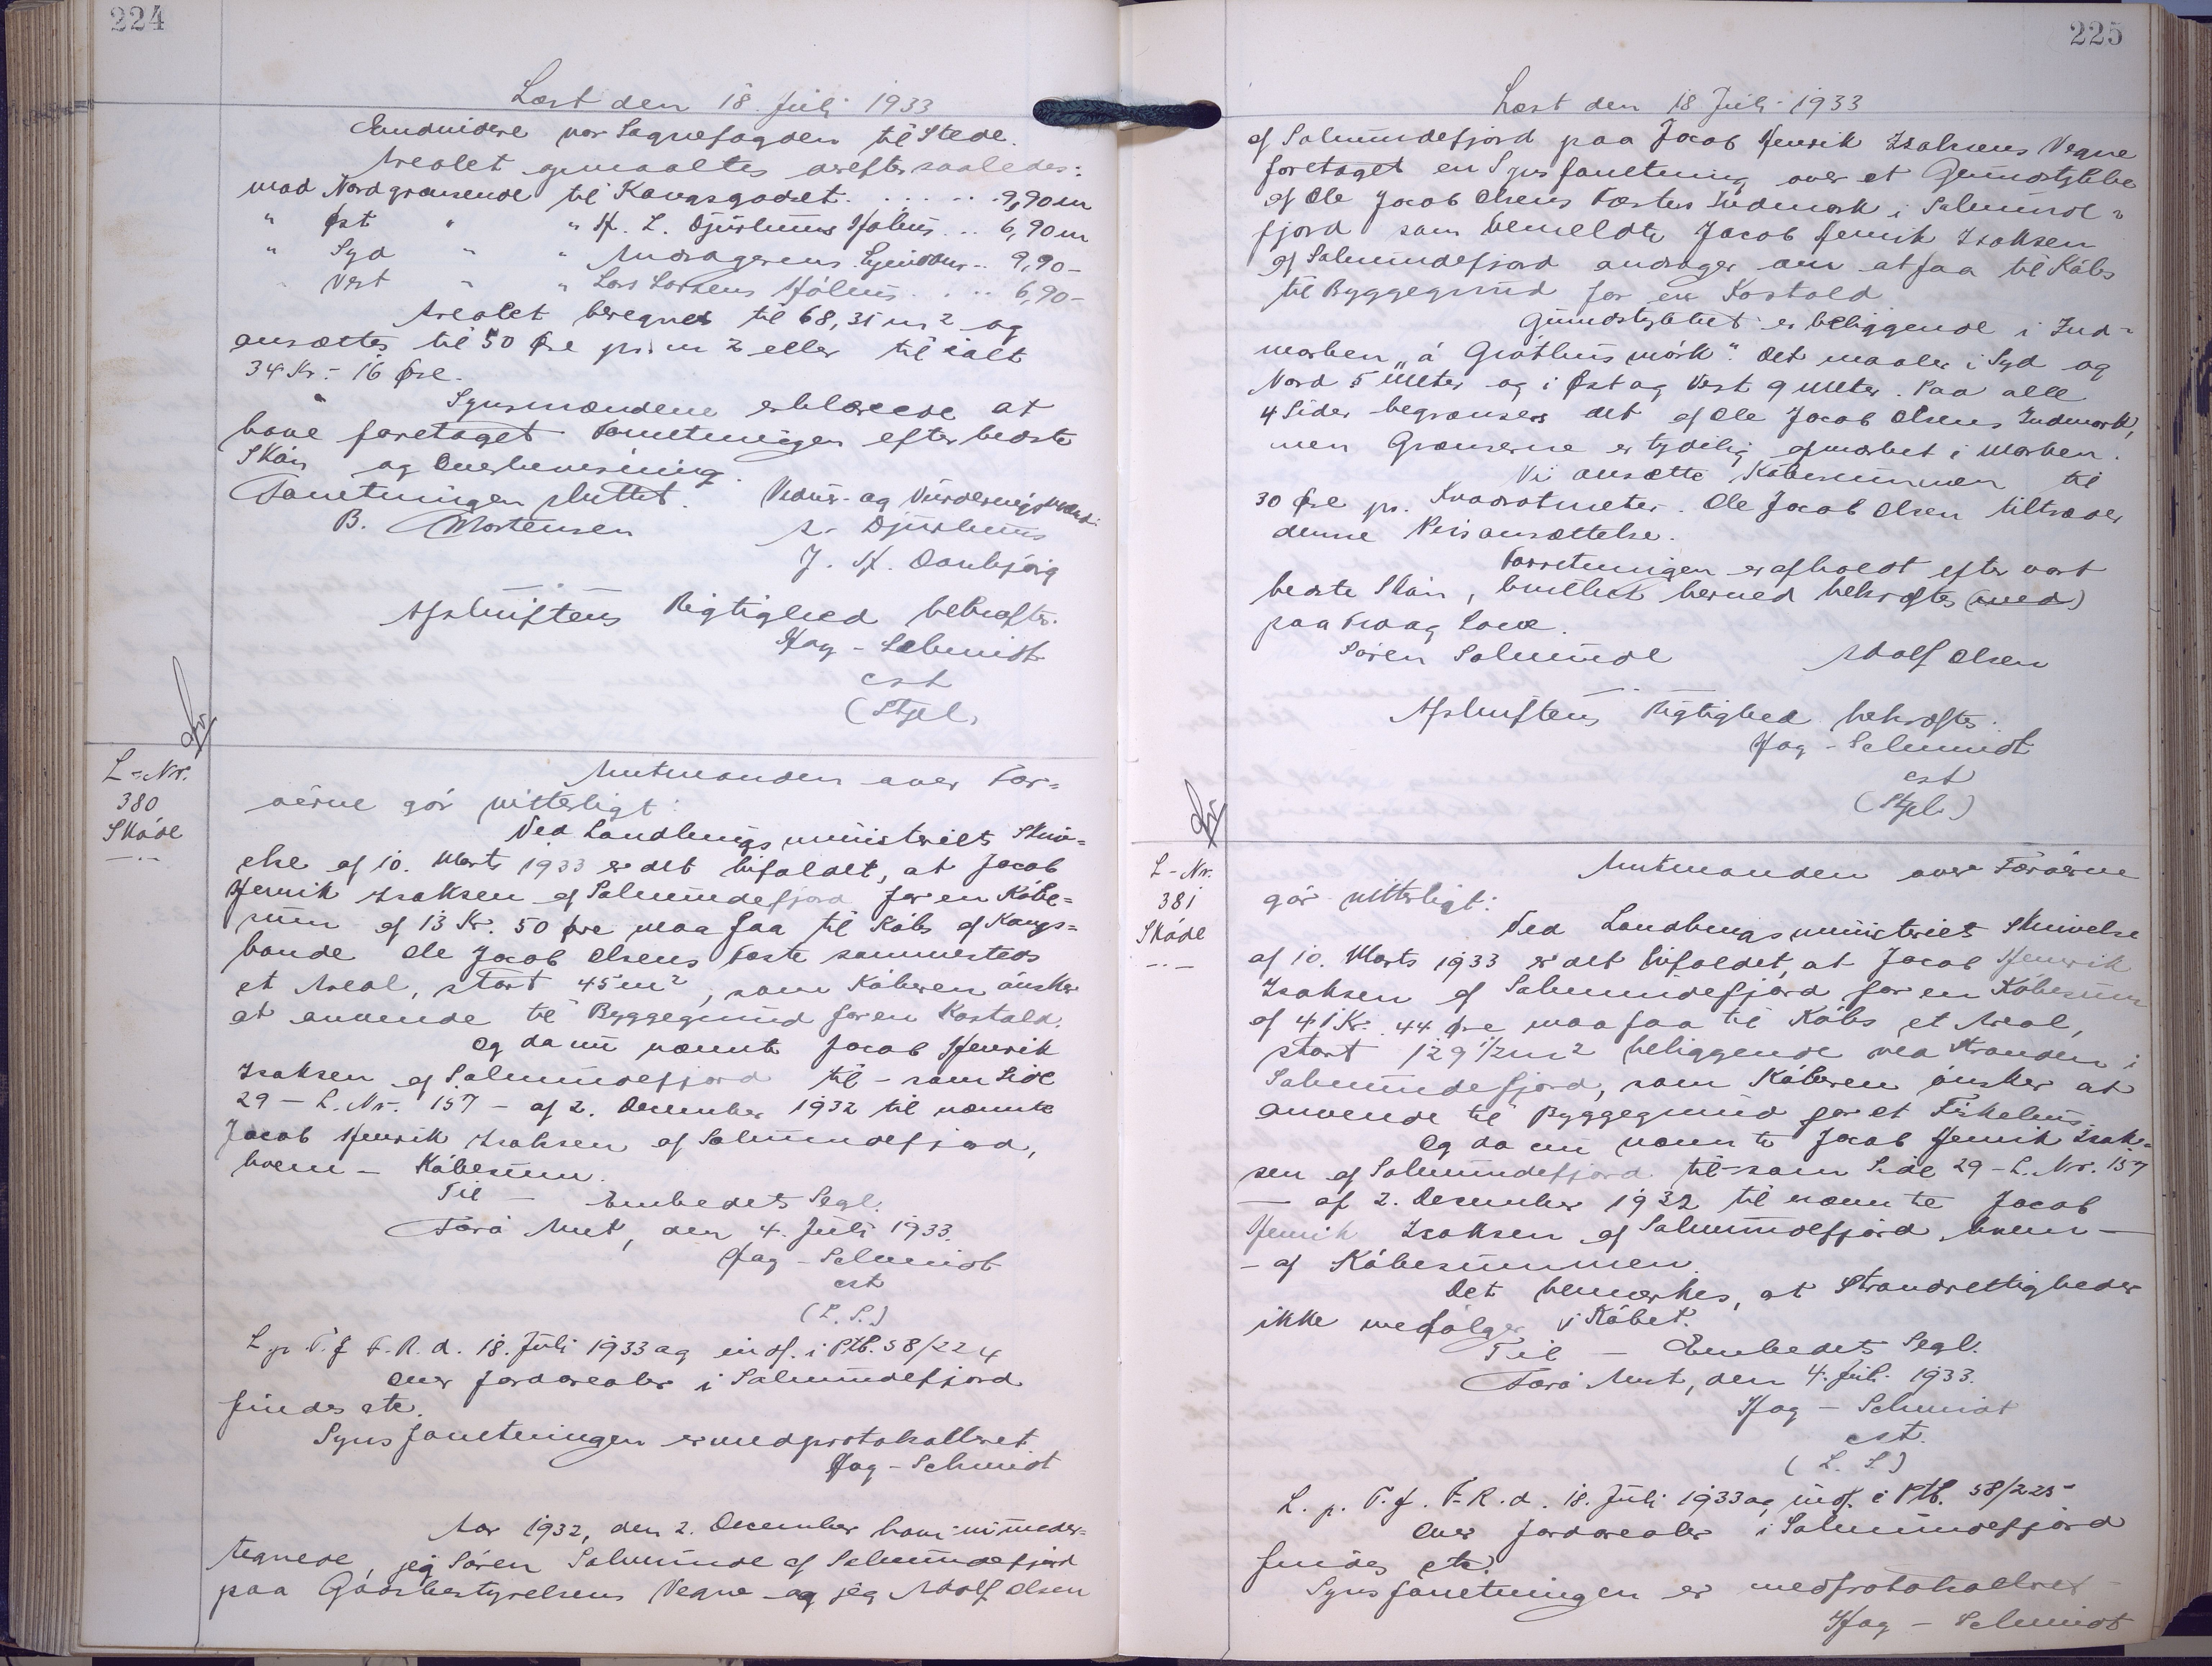 224
Læst den 18. Juli 1933
Endvidere var Sognefogden til Stede.
Arealet opmaaltes derefter saaledes:
mod Nord grænsende til Kongsgodset. . . . . . 9,90 m
" Øst " " H. L. Djurhuus Hølus . . 6,90 m
" Syd " " Andragerens Ejendom . . 9,90 -
" Vest " " Lars Larsens Hølus . . . . 6,90 -
Arealet beregnes til 68,31 m2 og
ansættes til 50 Øre pr. m2 eller til ialt
34 Kr. - 16 Øre.
Synsmændene erklærede at
have foretaget Forretningen efter bedste
Skøn og Overbevisning.
Forretningen sluttet. Vidne- og Vurderingsmænd:
B. Mortensen
Djurhuus
J. H. Danbjørg
Afskriftens Rigtighed bekræftes.
Hag - Schmidt
cst
(Stpl.
L-Nr.
380
Skåde
Amtmanden over Fær=
øerne gør vitterligt:
Ved Landbrugsministeriets Skriv=
else af 10. Marts 1933 er det bifaldet, at Jacob
Henrik Isaksen af Salmundefjord for en Købe=
sum af 13 Kr. 50 Øre maa faa til Købs af Kongs=
bonde Ole Jacob Olsens Fæste sammesteds
et Areal, stort 45 m2, som Køberen ønsker
at anvende til Byggegrund for en Kostald.
Og da nu nævnte Jacob Henrik
Isaksen af Salmundefjord til - som Side
29 - L.Nr. 157 - af 2. December 1932 til nævnte
Jacob Henrik Isaksen af Salmundefjord,
hvem - Købesum.
Til - Embedets Segl.
Færø Amt, den 4. Juli 1933.
Hag - Schmidt
cst
(L. S.)
L. p. T. f. F. R. d. 18. Juli 1933 og indf. i Ptb. 58/224
Over Jordarealer i Salmundefjord
findes etc.
Synsforretningen er medprotokolleret.
Hag - Schmidt
Aar 1932, den 2. December have vi under=
tegnede, jeg Søren Salmunde af Salmundefjord
paa Godsbestyrelsens Vegne og jeg Adolf Olsen
225
Læst den 18 Juli 1933
af Salmundefjord paa Jacob Henrik Isaksens Vegne
foretaget en Synsforretning over et Grundstykke
af Ole Jacob Olsens Fæstes Indmark i Salmund=
fjord som bemeldte Jacob Henrik Isaksen
af Salmundefjord andrager om at faa til Købs
til Byggegrund for en Kostald.
Grundstykket er beliggende i Ind=
marken "á Grøthusmørk". Det maaler i Syd og
Nord 5 Meter og i Øst og Vest 9 Meter. Paa alle
4 Sider begrænses det af Ole Jacob Olsens Indmark,
men Grænserne er tydelig afmærket i Marken.
Vi ansætte Købesummen til
30 Øre pr. Kvadratmeter. Ole Jacob Olsen tiltræder
denne Prisansættelse.
Forretningen er afholdt efter vort
bedste Skøn, hvilket herved bekræftes (med)
paa Tro og Love.
Søren Salmunde Adolf Olsen
Afskriftens Rigtighed bekræftes.
Hag - Schmidt
cst
(Stpl.)
L-Nr.
381
Skåde
Amtmanden over Færøerne
gør vitterligt:
Ved Landbrugsministeriets Skrivelse
af 10. Marts 1933 er det bifaldet, at Jacob Henrik
Isaksen af Salmundefjord for en Købesum
af 41 Kr. 44 Øre maa faa til Købs et Areal,
stort 129 1/2 m2 beliggende ved Stranden i
Salmundefjord, som Køberen ønsker at
anvende til Byggegrund for et Fiskehus.
Og da nu nævnte Jacob Henrik Isak=
sen af Salmundefjord til - som Side 29 - L. Nr. 157
- af 2. December 1932 til nævnte Jacob
Henrik Isaksen af Salmundefjord, hvem -
- af Købesummen.
Det bemærkes, at Strandrettigheder
ikke medfølger i Købet.
Til - Embedets Segl.
Færø Amt, den 4. Juli 1933.
Hag - Schmidt
cst.
(L. S.)
L. p. T. f. F. R. d. 18. Juli 1933 og indf. i Ptb. 58/225
Over Jordarealer i Salmundefjord
findes etc.
Synsforretningen er medprotokolleret
Hag - Schmidt